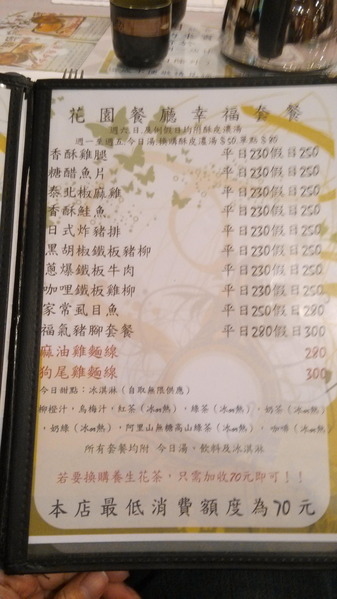 花園餐廳幸福套餐
週六.日.及例假日均附酥皮濃湯
週一至週五.今日湯換購酥皮濃湯$50.單點$80
香酥雞腿 平日230假日250
糖醋魚片 平日230假日250
泰北椒麻雞 平日230假日250
香酥鮭魚 平日230假日250
日式炸豬排 平日230假日250
黑胡椒鐵板豬柳 平日230假日250
蔥爆鐵板牛肉 平日230假日250
咖哩鐵板雞柳 平日230假日250
家常虱目魚 平日250假日280
福氣豬腳套餐 平日280假日300
麻油雞麵線 280
狗尾雞麵線 300
今日甜點：冰淇淋（自取無限供應）
柳橙汁，烏梅汁，紅茶（冰or熱），綠茶（冰or熱），奶茶（冰or熱）
，奶綠（冰or熱），阿里山無糖高山綠茶（冰or熱），咖啡（冰or熱）
所有套餐均附 今日湯、飲料及冰淇淋
若要換購養生花茶，只需加收70元即可！！
本店最低消費額度為70元